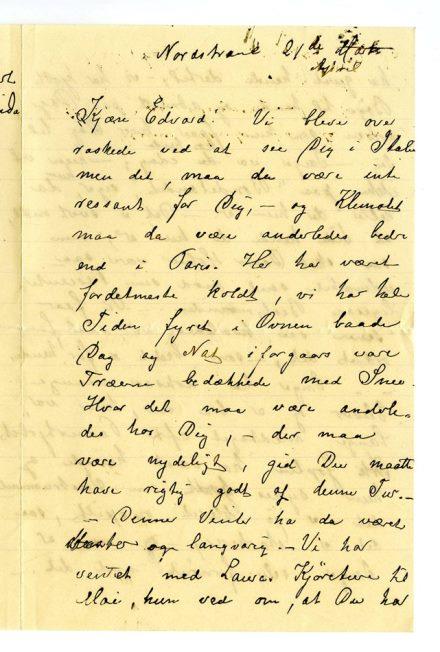 Nordstrand 21de
April
Kjære Edvard! Vi bleve over
raskede ved at see Dig i Italie
men det, maa du være inte
ressant for Dig, – og Klimatet
maa da være anderledes bedre
end i Paris. Her har været
fordetmeste koldt, vi har hele
Tiden fyret i Ovnen baade
Dag og Nat, iforgaars vare
Træerne bedækkede med Snee.
Hvor det maa være anderle-
des hos Dig, – der maa
være nydeligt, gid Du maatte
have rigtig godt af denne Tur. –
– Denne Vinter har da været
og langvarig. – Vi har
ventet med Lauras Kjöreture til
Mai, hun ved om, at Du har